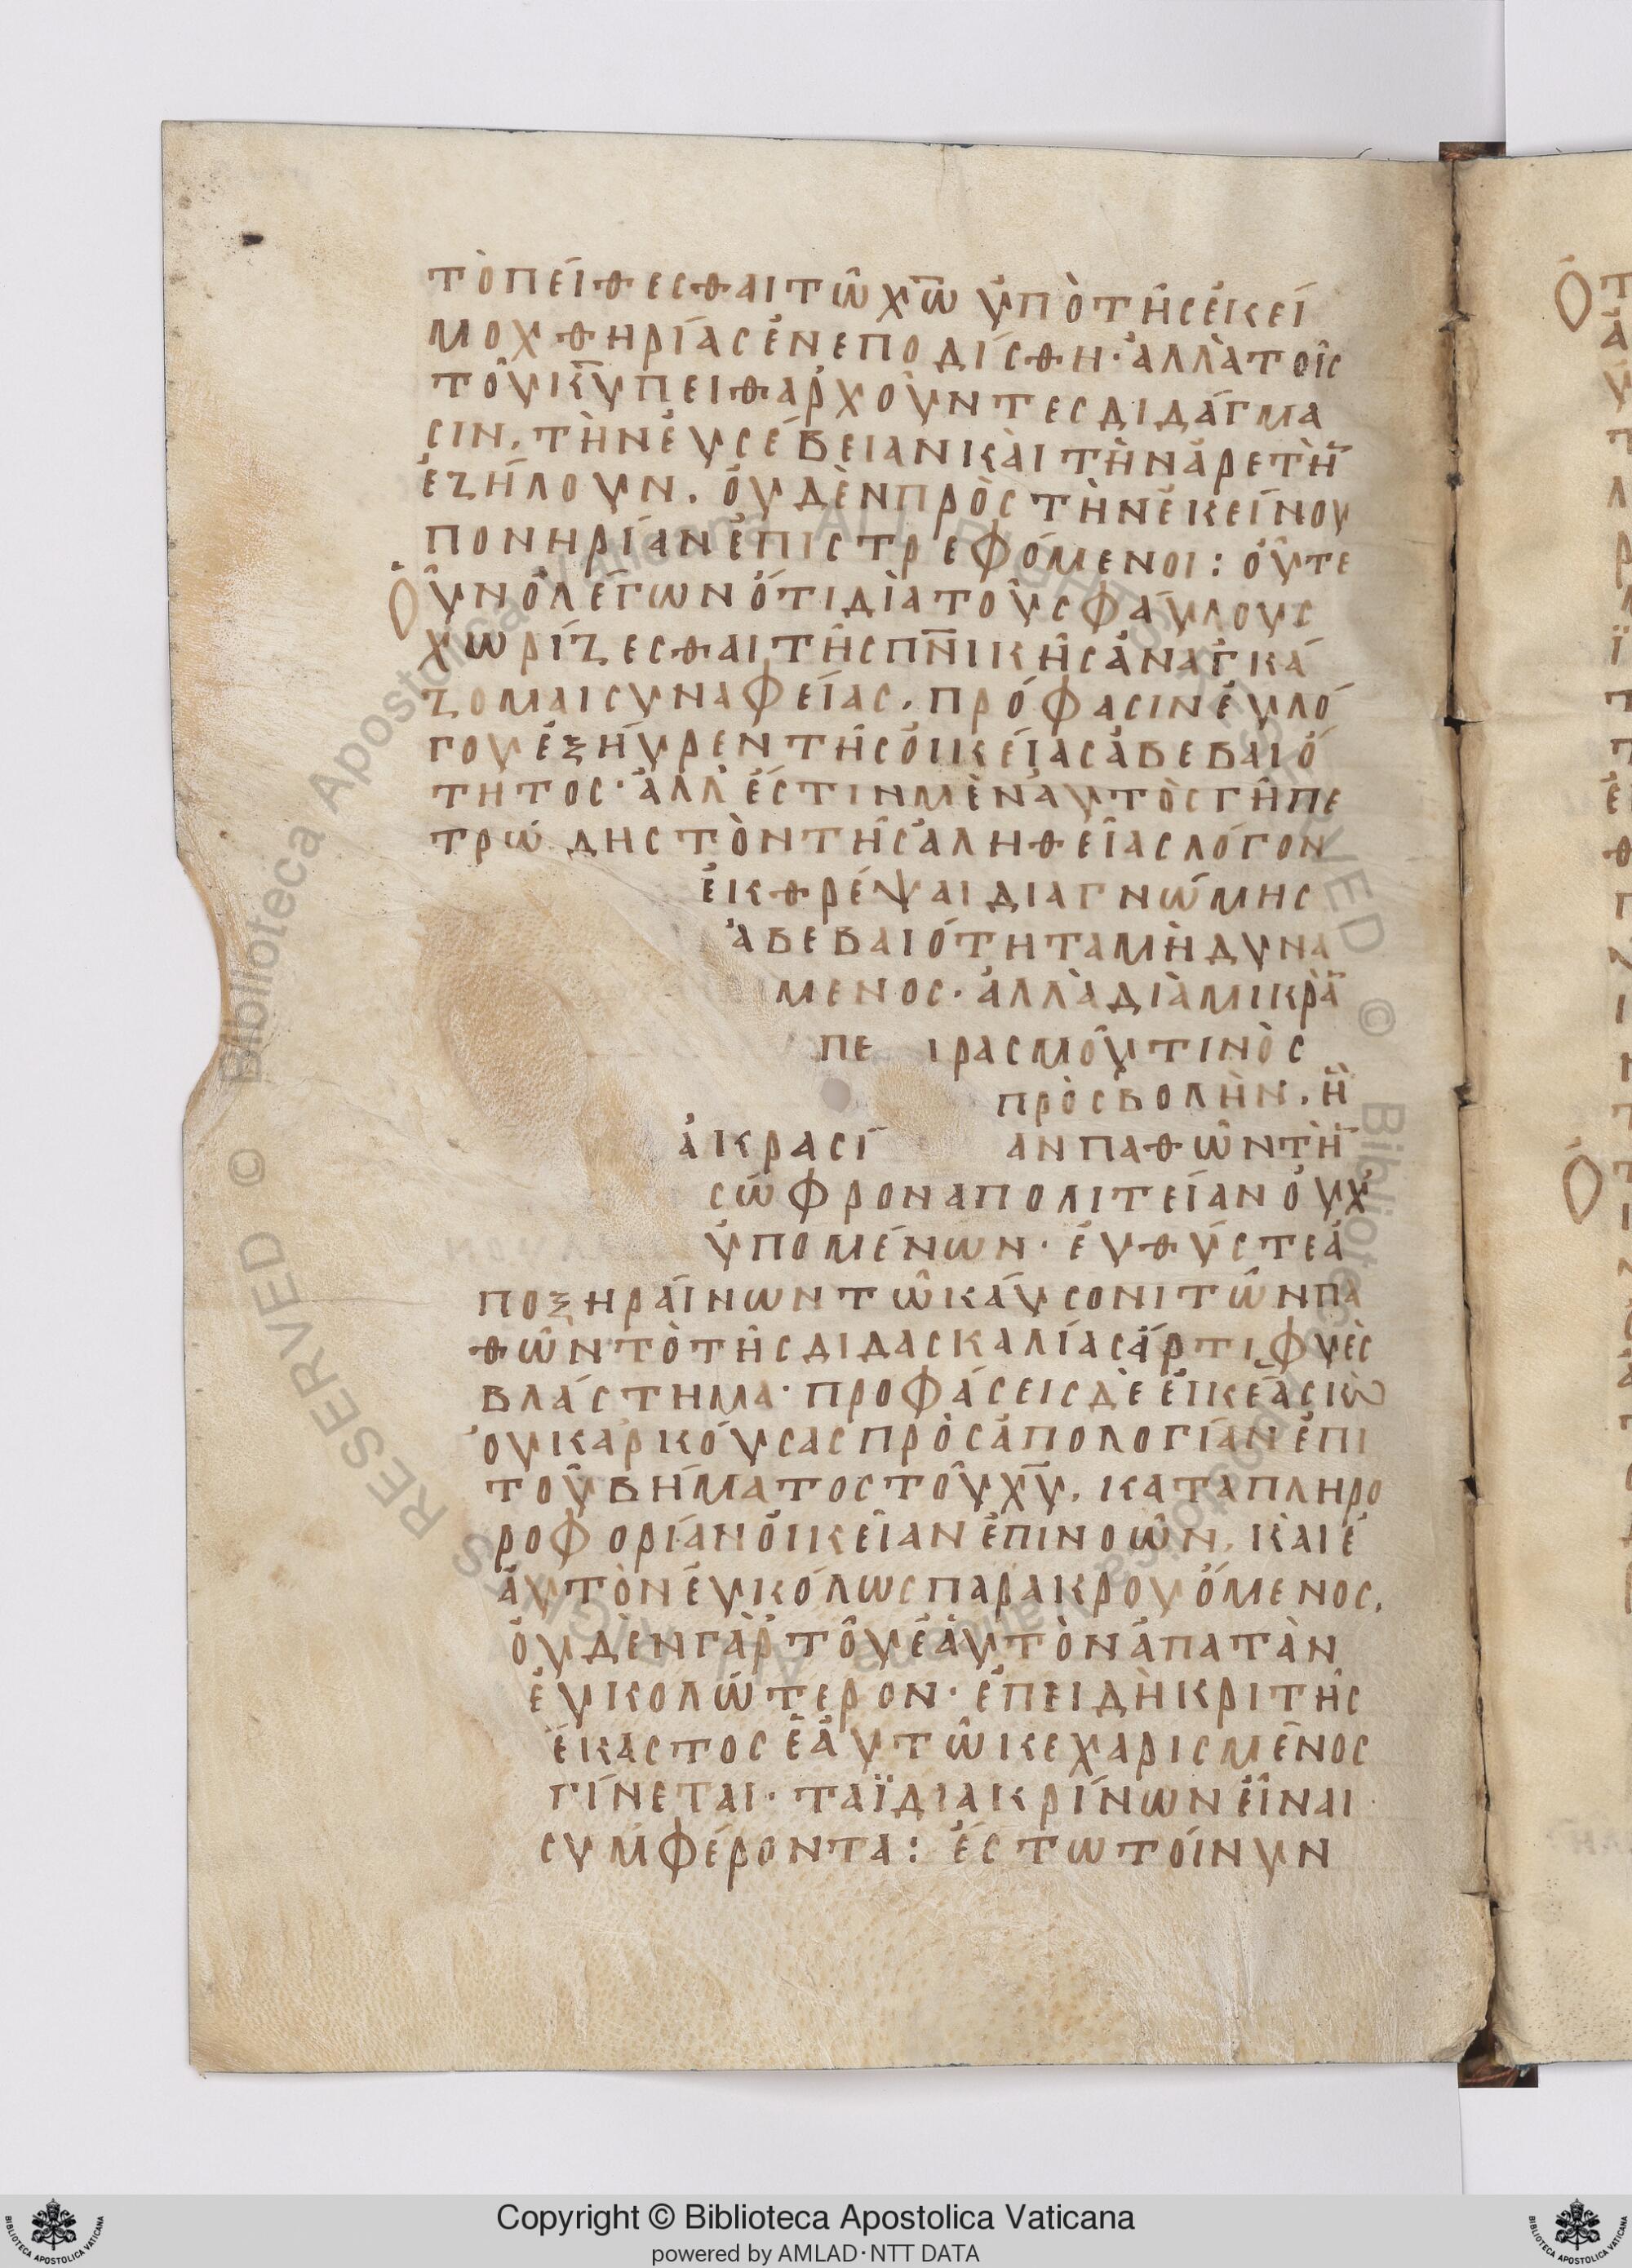 τὸ πείθεσθαι τῶ χ̅ω̅ ὑπὸ τῆς ἐκεί
μοχθηρίας ἐνεποδίσθη· ἀλλὰ τοῖς
τοῦ κ̅υ̅ πειθαρχοῦντες διδάγμα
σιν, τὴν ἐυσέβειαν καὶ τὴν ἀρετὴ̅
ἐζήλουν, οὐδὲν πρὸς τὴν ἐκείνου
πονηρίαν ἐπιστρεφόμενοι: ὅυτε
Ὀῦν ὁ λέγων ὅτι διὰ τοὺς φάυλους
χωρίζεσθαι τῆς π̅ν̅ικῆς ἀναγκά
ζομαι συναφείας, πρόφασιν ἐυλό
γου ἐξηύρεν τῆς ὀικείας ἀβεβαιό
τητος· ἀλλ' ἔστιν μὲν ἀυτὸς γῆ πε
τρώδης τὸν τῆς ἀληθείας λόγον
ἐκθρέψαι δια γνώμης
ἀβεβαιότητα μὴ δυνα
μενος· ἀλλὰ διὰ μικρὰ̅
πειρασμοῦ τινὸς
πρὸσβολὴν, ἢ
ἀκρασίαν παθῶν τὴ̅
σώφρονα πολιτείαν ὀυχ'
ὑπομένων· ἐυθύς τε ἀ
ποξηραίνων τῶ κάυσονι τῶν πα
θῶν τὸ τῆς διδασκαλίας ἄρτι φυὲς
βλάστημα· προφάσεις δὲ ἐικέας κὼ
ὀυκ ἀρκόυσας πρὸς ἀπολογίαν ἐπι
τοῦ βήματος τοῦ χ̅υ̅, κατα πληρο
ροφορίαν ὀικείαν ἐπινοῶν, καὶ ἑ
ἀυτὸν ἐυκόλως παρακρουόμενος,
ὀυδὲν γὰρ τοῦ ἑἀυτὸν ἀπατὰν
ἐυκολώτερον· ἐπειδὴ κριτὴς
ἕκαστος ἑἀυτῶ κεχαρισμένος
γίνεται· ταϊ διακρίνων ἐῖναι
συμφέροντα: ἔστω τόινυν
Copyright © Biblioteca Apostolica Vaticana
powered by AMLAD・NTT DATA